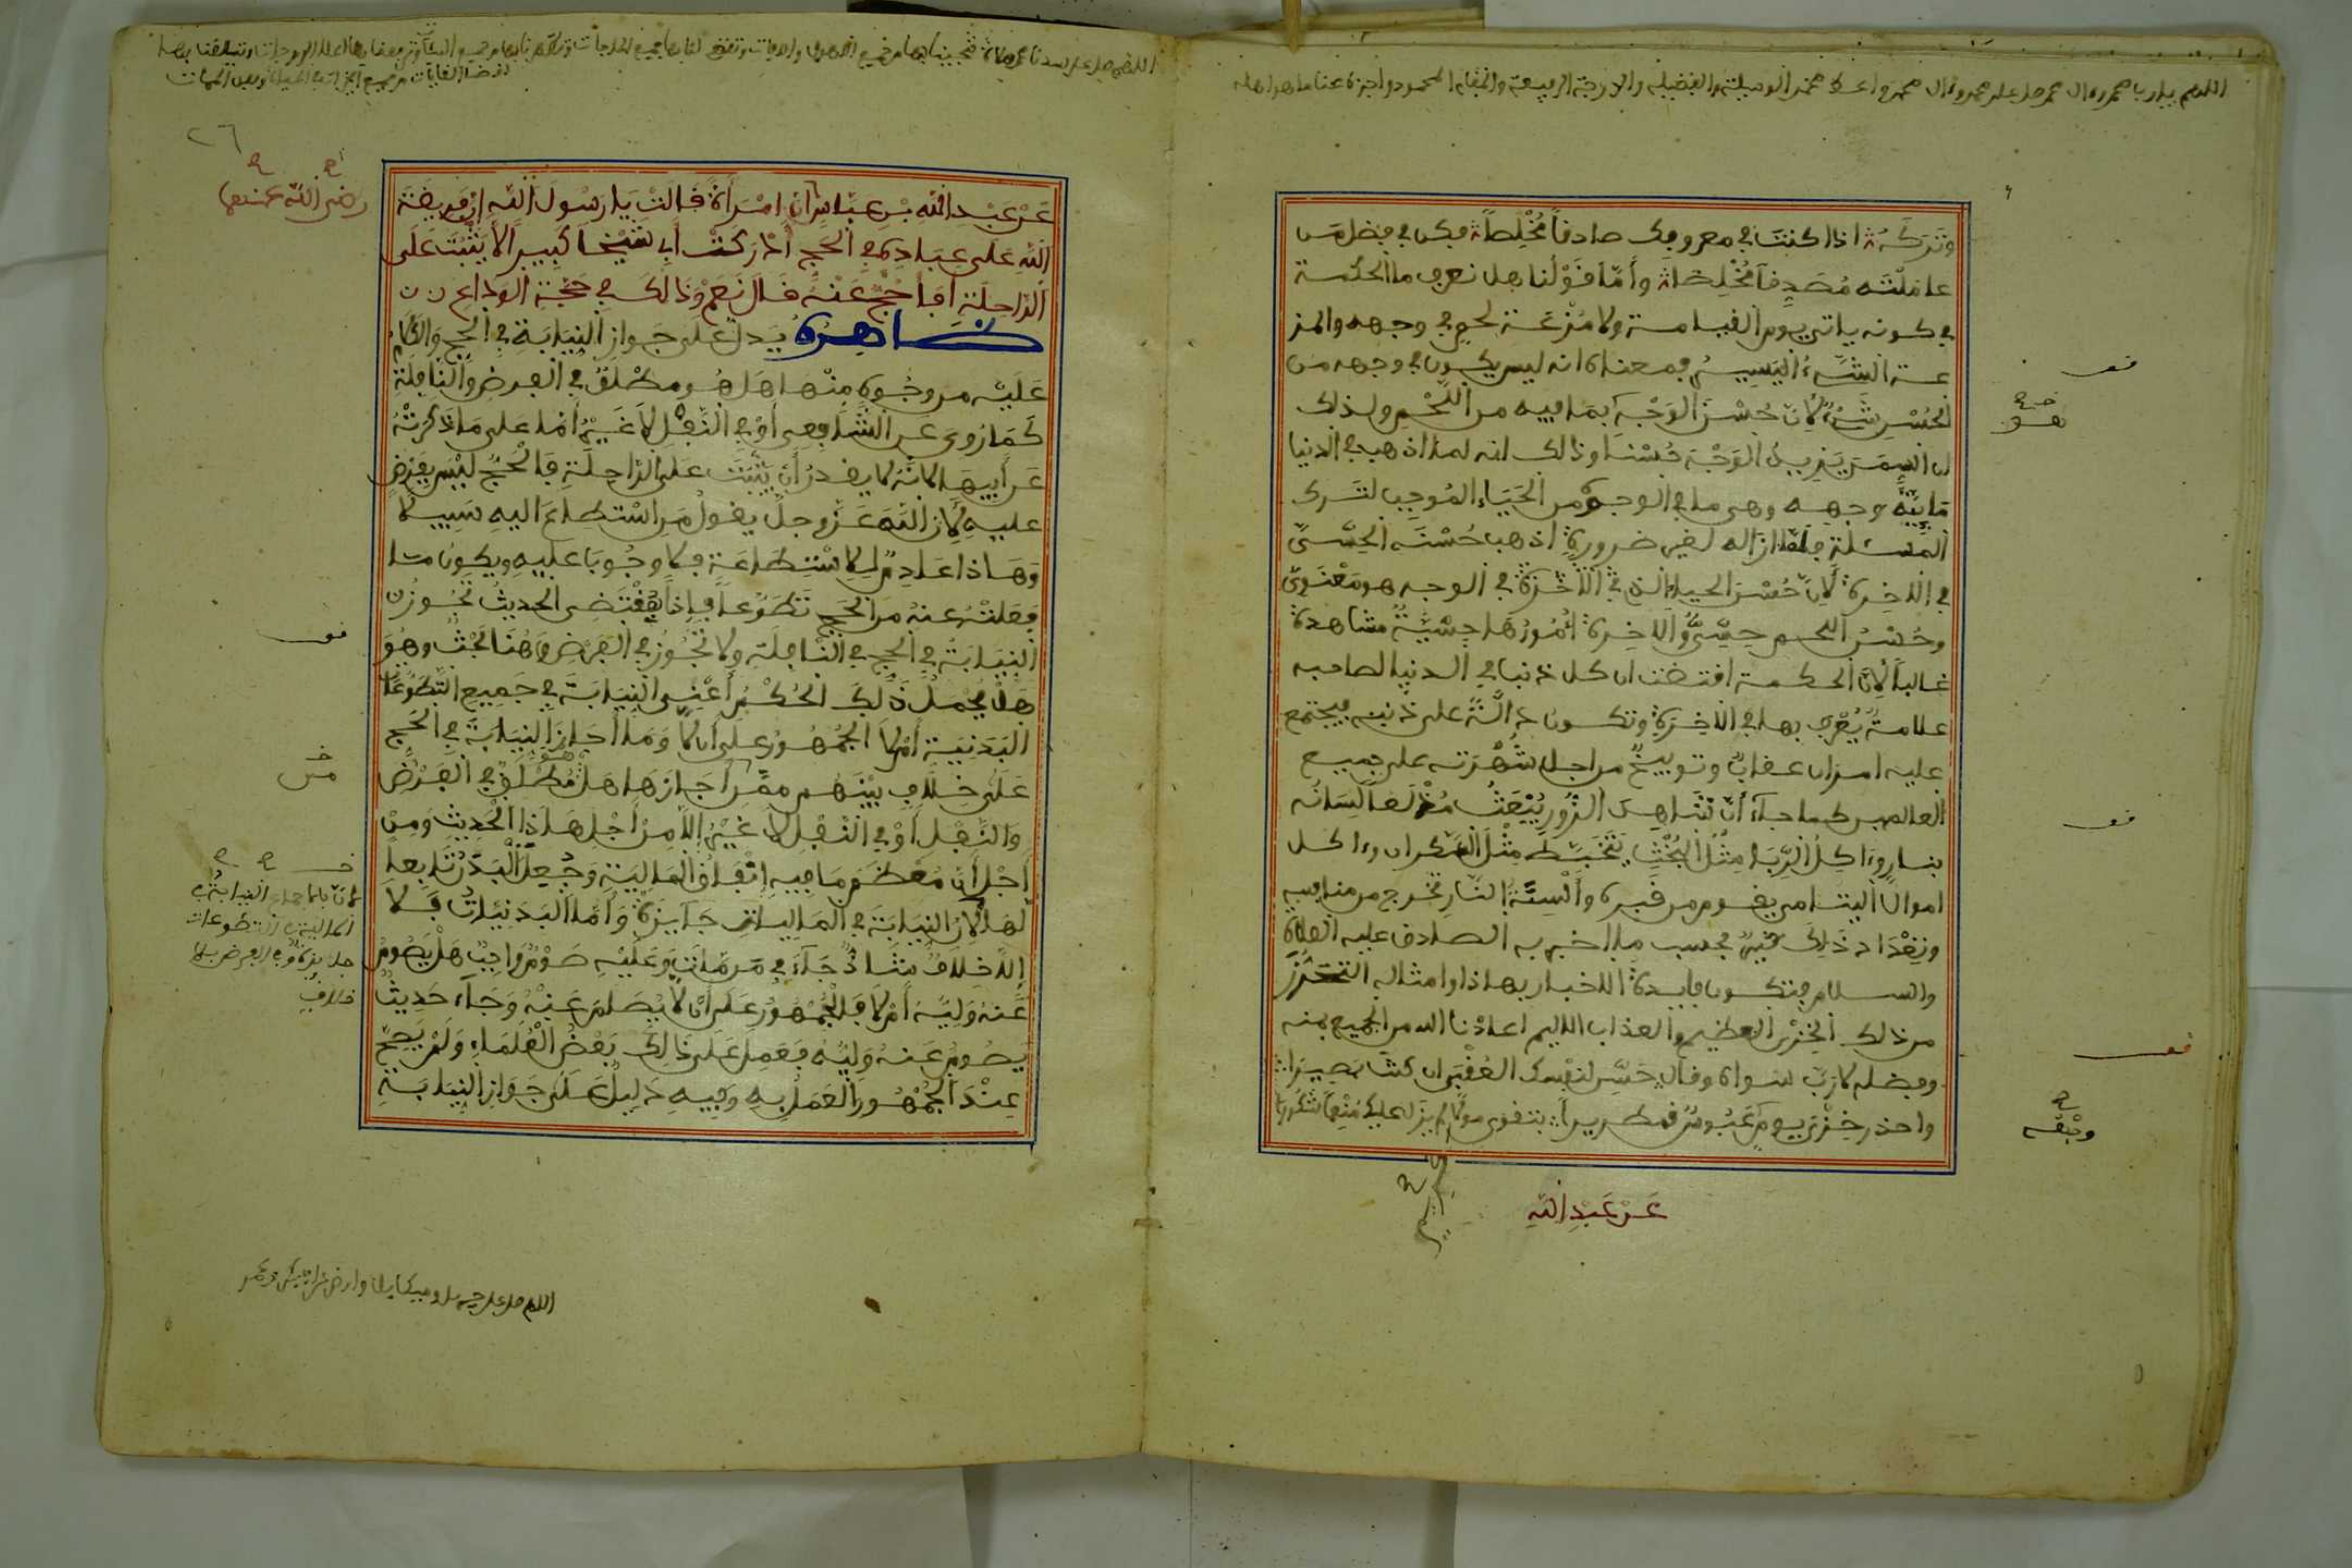 اللهم يا رب محمد وءال محمد صل على محمد وءال محمد واعط محمدا الوسيلة والفضيلة والدرجة الرفيعة والمقام المحمود واجزه عنا ما هو اهله
وتركه اذا كنت في معروفك صادقا مخلصا فكن في فضل من
عاملته مصدقا مخلصا وأما قولنا هل نعرف ما الحكمة
في كونه ياتي يوم القيامة ولا مزعة لحم في وجهه والمز
عة الشىء اليسير فمعناه انه ليس يكون في وجهه من
الحسن شىء لأن حسن الوجه بما فيه من اللحم ولذلك
ان السمن يزيد الوجه حسنا وذالك انه لما اذهب في الدنيا
مائية وجهه وهى ما في الوجوه من الحياء الموجب لترك
المسئلة فلما ازاله لغير ضرورة اذهب حسنه الحسى
في الاخرة لأن حسن الحياء الذى في الاخرة في الوجه هو معنوى
وحسن اللحم حسى والاخرة امورها حسية مشاهدة
غالبا لأن الحكمة اقتضت ان كل ذنب في الدنيا لصاحبه
علامة يعرف بها في الاخرة وتكون دالة على ذنبه فيجتمع
عليه امران عقاب وتوبيخ من اجل شهرته على جميع
العالمين كما جآء أن شاهد الزور يبعث مولعا لسانه
بنار وءاكل الربا مثل البخت يتخبط مثل السكران وءاكل
اموال اليتامى يقوم من قبره وألسنة النار تخرج من منافسه
وتعداد ذلك كثير بحسب ما اخبر به الصادق عليه الصلاة
والسلام فتكون فايدة الاخبار بهاذا وامثاله التحرز
من ذلك الخزي العظيم والعذاب الاليم اعاذنا الله من الجميع بمنه
وفضله لا رب سواه وقال حسن لنفسك العقبى ان كنت بصيرا
واحذر خزي يوم عبوس قمطريرا بتقوى مولى لم يزل عليك منعما شكورا
عن عبد الله
رضي الله عنهما
عن عبد الله بن عباس ان امرأة قالت يا رسول الله إن فريضة
الله على عباده في الحج أدركت أبي شيخا كبيرا لا يثبت على
الراحلة أفأحج عنه قال نعم وذالك في حجة الوداع
ظاهره يدل على جواز النيابة في الحج والكلام
عليه من وجوه منها هل هو مطلق في الفرض والنافلة
كما روى عن الشافعي أو في النفل لا غير اما على ما ذكرته
عن أبيها لانه لا يقدر أن يثبت على الراحلة فالحج ليس بفرض
عليه لأن الله عز وجل يقول من استطاع اليه سبيلا
وهاذا عادم للاستطاعة فلا وجوبا عليه ويكون ما
فعلته عنه من الحج تطوعا فإذا بمقتضى الحديث تجوز
النيابة في الحج في النافلة ولا تجوز في الفرض وهنا بحث وهو
هل يحمل ذلك الحكم أعني النيابة في جميع التطوعات
البدنية أم لا الجمهور على ان لا وما أجاز النيابة في الحج
على خلاف بينهم ممن أجازها هل هو مطلق في الفرض
والنفل أو في النفل لا غير إلا من أجل هاذا الحديث ومن
أجل أن معظم ما فيه إنفاق المالية وجعل البدن تابعا
لها لأن النيابة في الماليات جايزة وأما البدنيات فلا
إلا خلاف شاذ جآء في من مات وعليه صوم واجب هل يصوم
عنه وليه أم لا فالجمهور على أن لا يصام عنه وجآء حديث
يصوم عنه وليه فعمل على ذالك بعض العلماء ولم يصح
عند الجمهور العمل به وفيه دليل على جواز النيابة